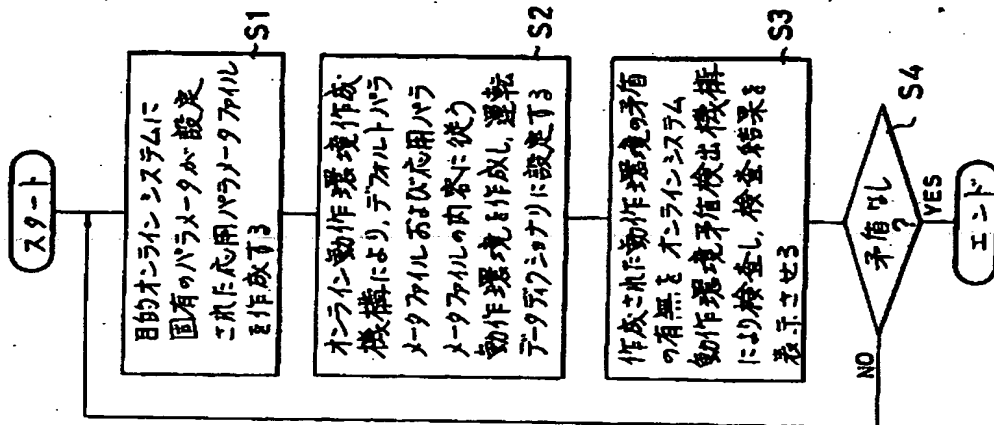 スタート
目的オンラインシステムに
固有のパラメータが設定
された応用パラメータファイル
を作成する
S1
オンライン動作環境作成
機構により、デフォルトパラ
メータファイルおよび応用パラ
メータファイルの内容に従う
動作環境を作成し、運転
データディクショナリに設定する
S2
作成された動作環境の矛盾
の有無をオンラインシステム
動作環境矛盾検出機構
により検査し、検査結果を
表示させる
S3
矛盾なし
?
S4
NO
YES
エンド